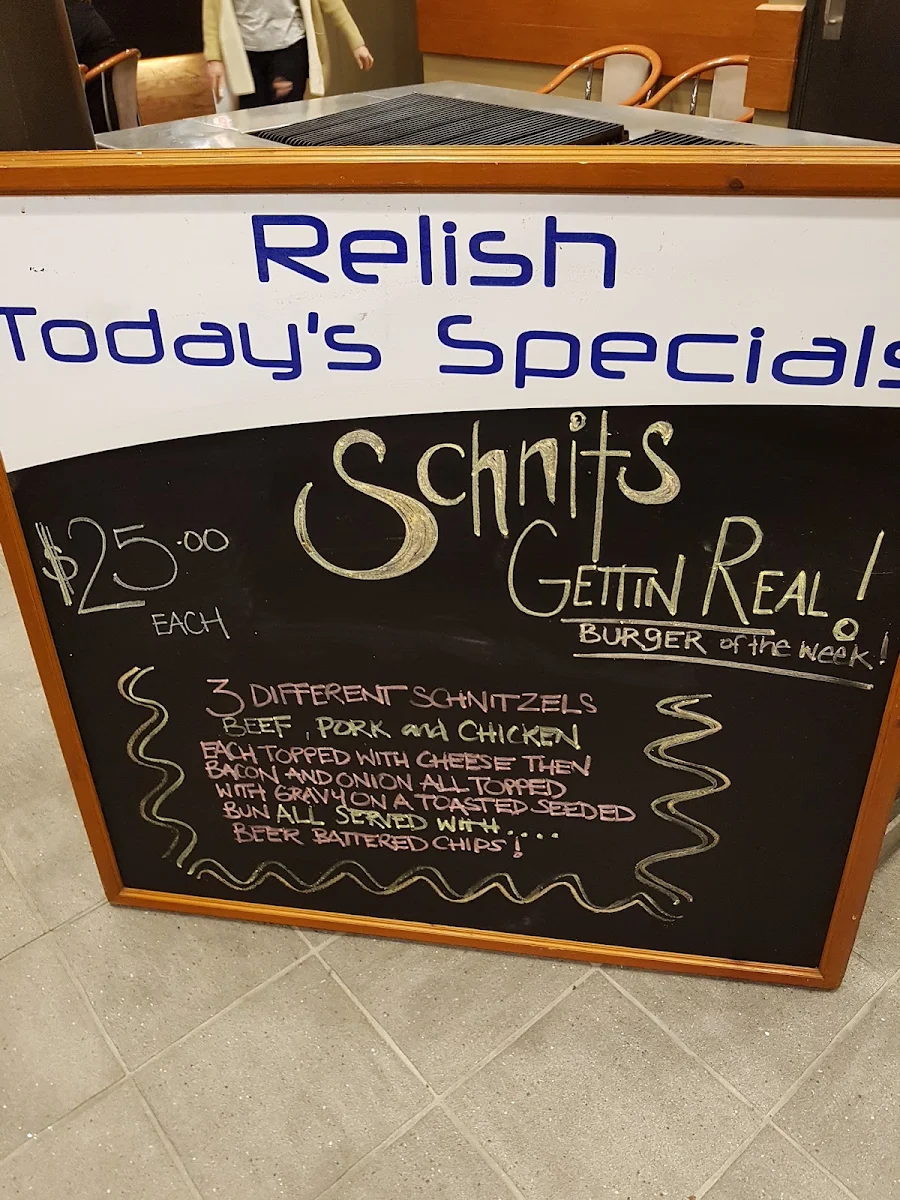 Relish
Today's Specials
Schnits
GETTIN REAL!
BURGER of the week!
$25.00
EACH
3 DIFFERENT SCHNITZELS
BEEF, PORK and CHICKEN
EACH TOPPED WITH CHEESE THEN
BACON AND ONION ALL TOPPED
WITH GRAVY ON A TOASTED SEEDED
BUN ALL SERVED WITH....
BEER BATTERED CHIPS!